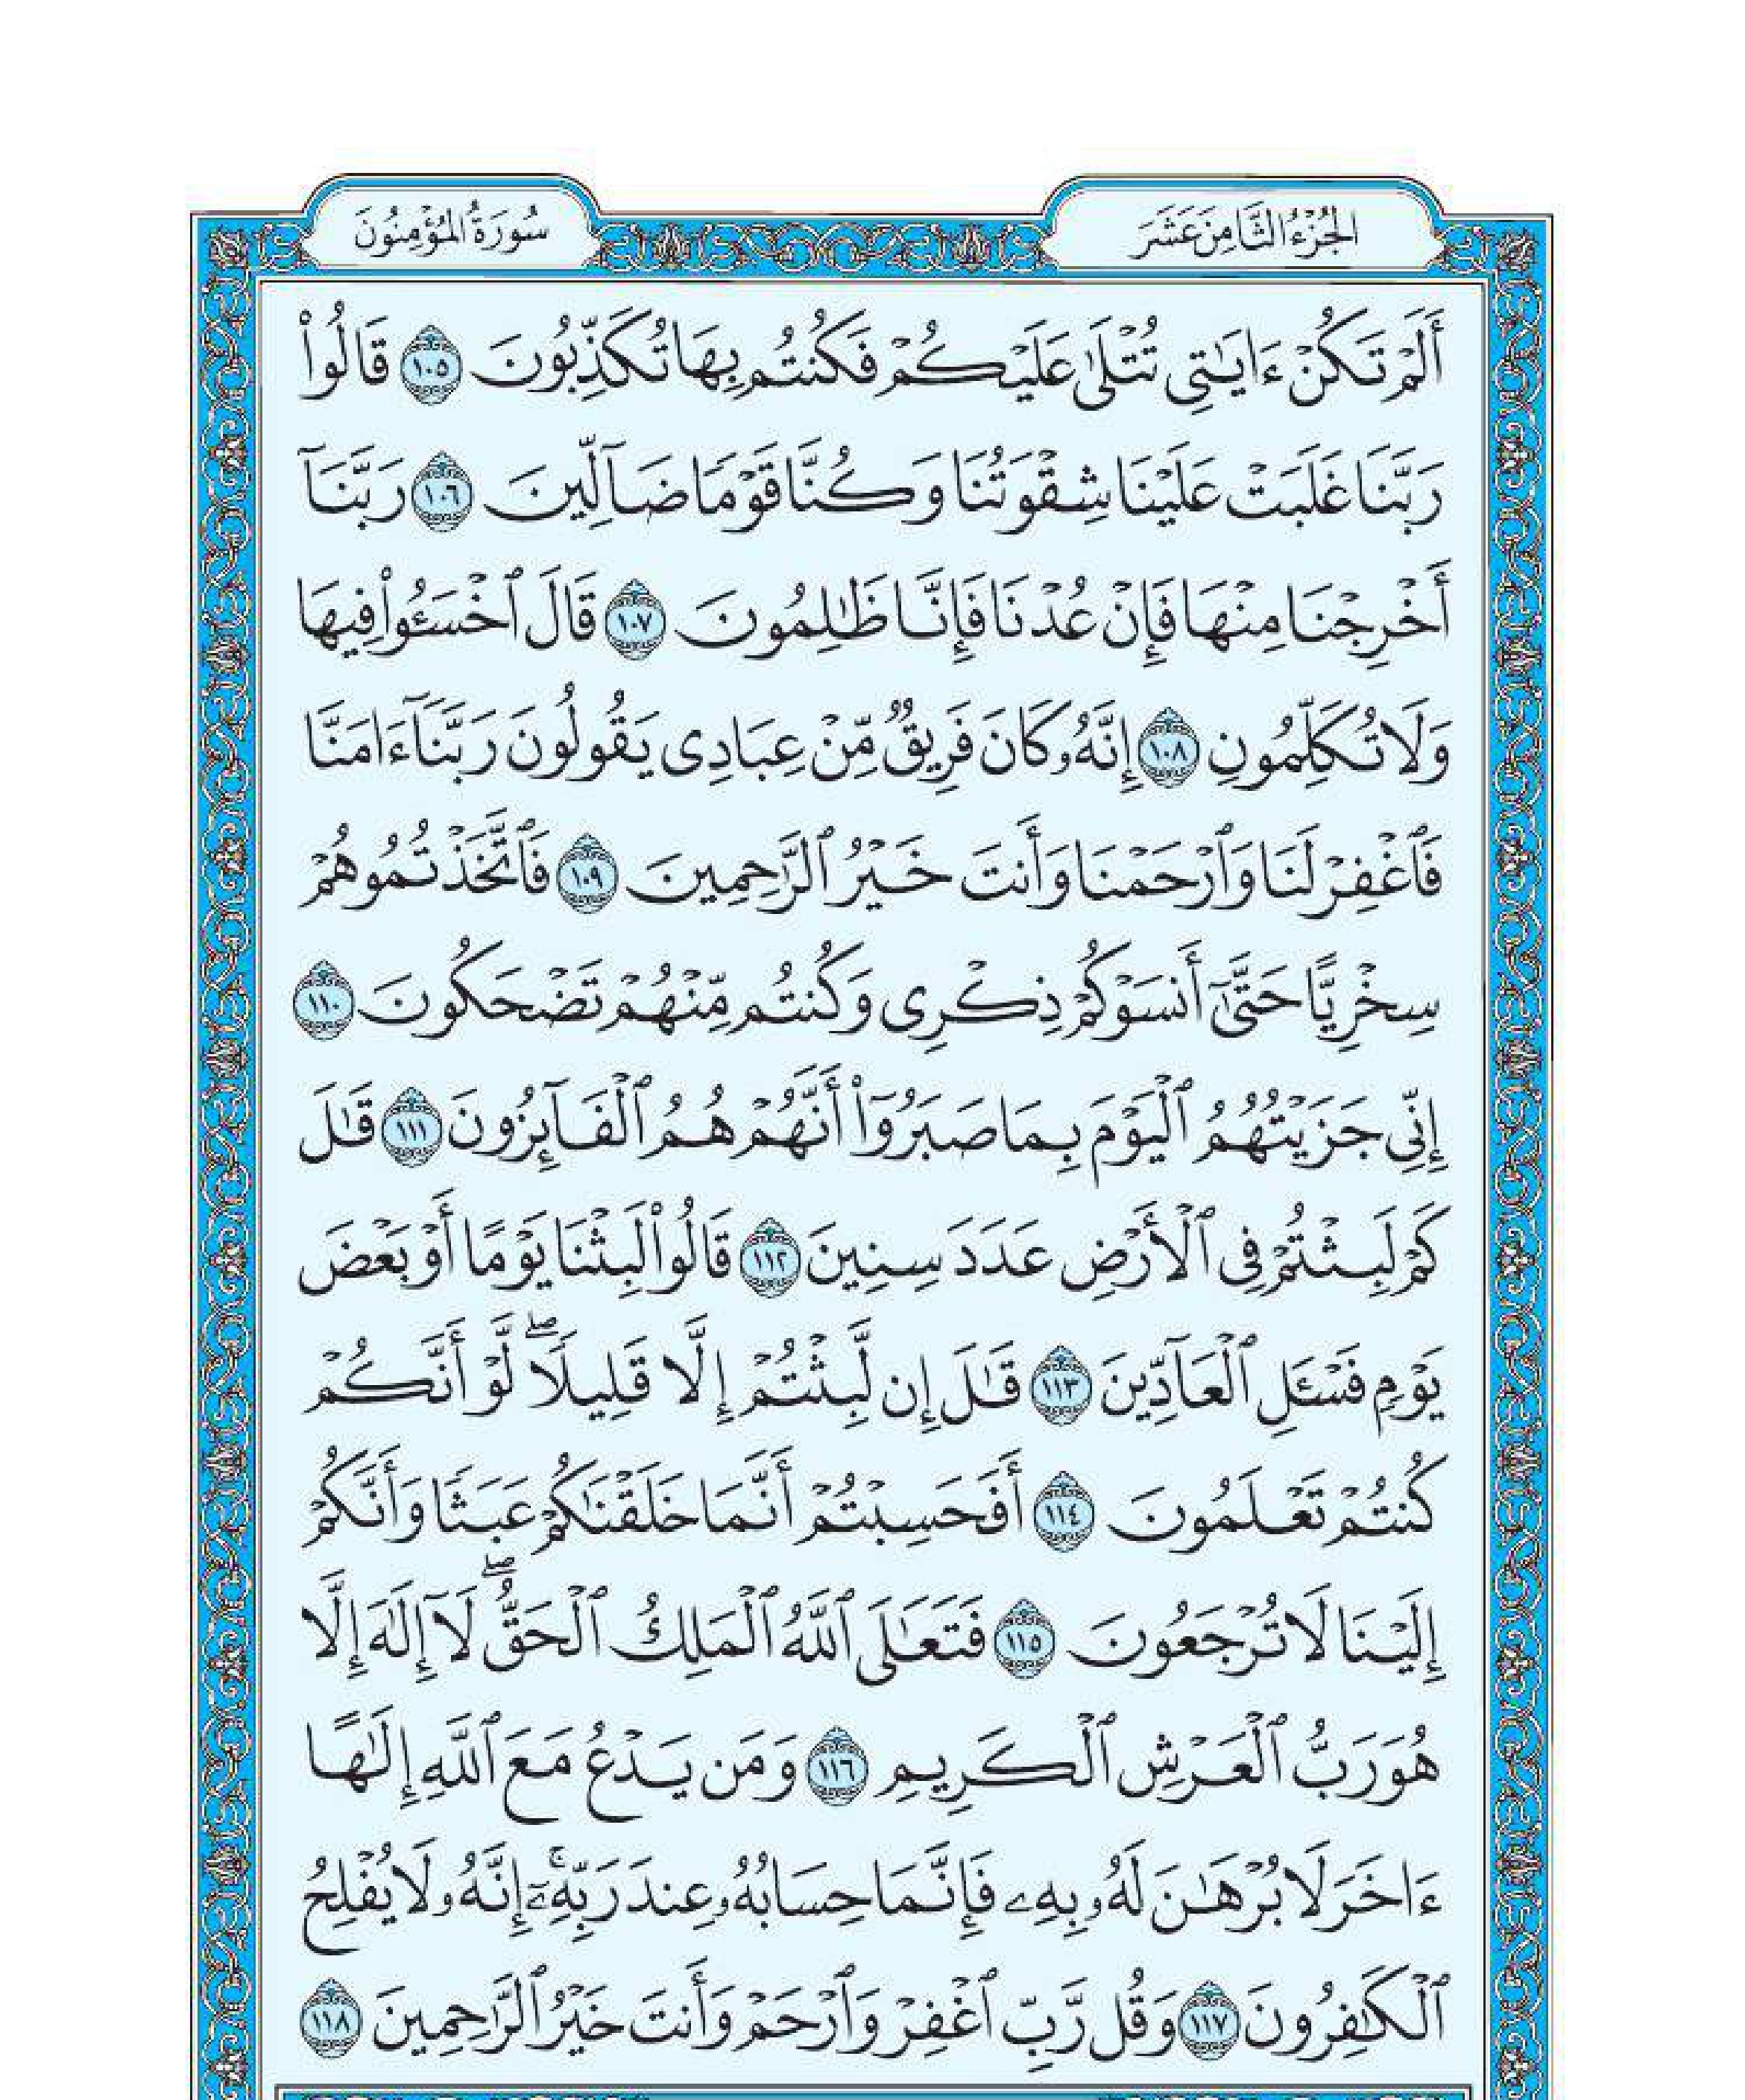 الجُزْءُ الثَّامِنَ عَشَرَ
سُورَةُ المُؤْمِنُونَ
أَلَمْ تَكُنْ ءَايَٰتِى تُتْلَىٰ عَلَيْكُمْ فَكُنتُم بِهَا تُكَذِّبُونَ ١٠٥ قَالُوا۟
رَبَّنَا غَلَبَتْ عَلَيْنَا شِقْوَتُنَا وَكُنَّا قَوْمًا ضَآلِّينَ ١٠٦ رَبَّنَآ
أَخْرِجْنَا مِنْهَا فَإِنْ عُدْنَا فَإِنَّا ظَٰلِمُونَ ١٠٧ قَالَ ٱخْسَـُٔوا۟ فِيهَا
وَلَا تُكَلِّمُونِ ١٠٨ إِنَّهُۥ كَانَ فَرِيقٌ مِّنْ عِبَادِى يَقُولُونَ رَبَّنَآ ءَامَنَّا
فَٱغْفِرْ لَنَا وَٱرْحَمْنَا وَأَنتَ خَيْرُ ٱلرَّٰحِمِينَ ١٠٩ فَٱتَّخَذْتُمُوهُمْ
سِخْرِيًّا حَتَّىٰٓ أَنسَوْكُمْ ذِكْرِى وَكُنتُم مِّنْهُمْ تَضْحَكُونَ ١١٠
إِنِّى جَزَيْتُهُمُ ٱلْيَوْمَ بِمَا صَبَرُوٓا۟ أَنَّهُمْ هُمُ ٱلْفَآئِزُونَ ١١١ قَٰلَ
كَمْ لَبِثْتُمْ فِى ٱلْأَرْضِ عَدَدَ سِنِينَ ١١٢ قَالُوا۟ لَبِثْنَا يَوْمًا أَوْ بَعْضَ
يَوْمٍ فَسْـَٔلِ ٱلْعَآدِّينَ ١١٣ قَٰلَ إِن لَّبِثْتُمْ إِلَّا قَلِيلًا ۖ لَّوْ أَنَّكُمْ
كُنتُمْ تَعْلَمُونَ ١١٤ أَفَحَسِبْتُمْ أَنَّمَا خَلَقْنَٰكُمْ عَبَثًا وَأَنَّكُمْ
إِلَيْنَا لَا تُرْجَعُونَ ١١٥ فَتَعَٰلَى ٱللَّهُ ٱلْمَلِكُ ٱلْحَقُّ ۖ لَآ إِلَٰهَ إِلَّا
هُوَ رَبُّ ٱلْعَرْشِ ٱلْكَرِيمِ ١١٦ وَمَن يَدْعُ مَعَ ٱللَّهِ إِلَٰهًا
ءَاخَرَ لَا بُرْهَٰنَ لَهُۥ بِهِۦ فَإِنَّمَا حِسَابُهُۥ عِندَ رَبِّهِۦٓ ۚ إِنَّهُۥ لَا يُفْلِحُ
ٱلْكَٰفِرُونَ ١١٧ وَقُل رَّبِّ ٱغْفِرْ وَٱرْحَمْ وَأَنتَ خَيْرُ ٱلرَّٰحِمِينَ ١١٨